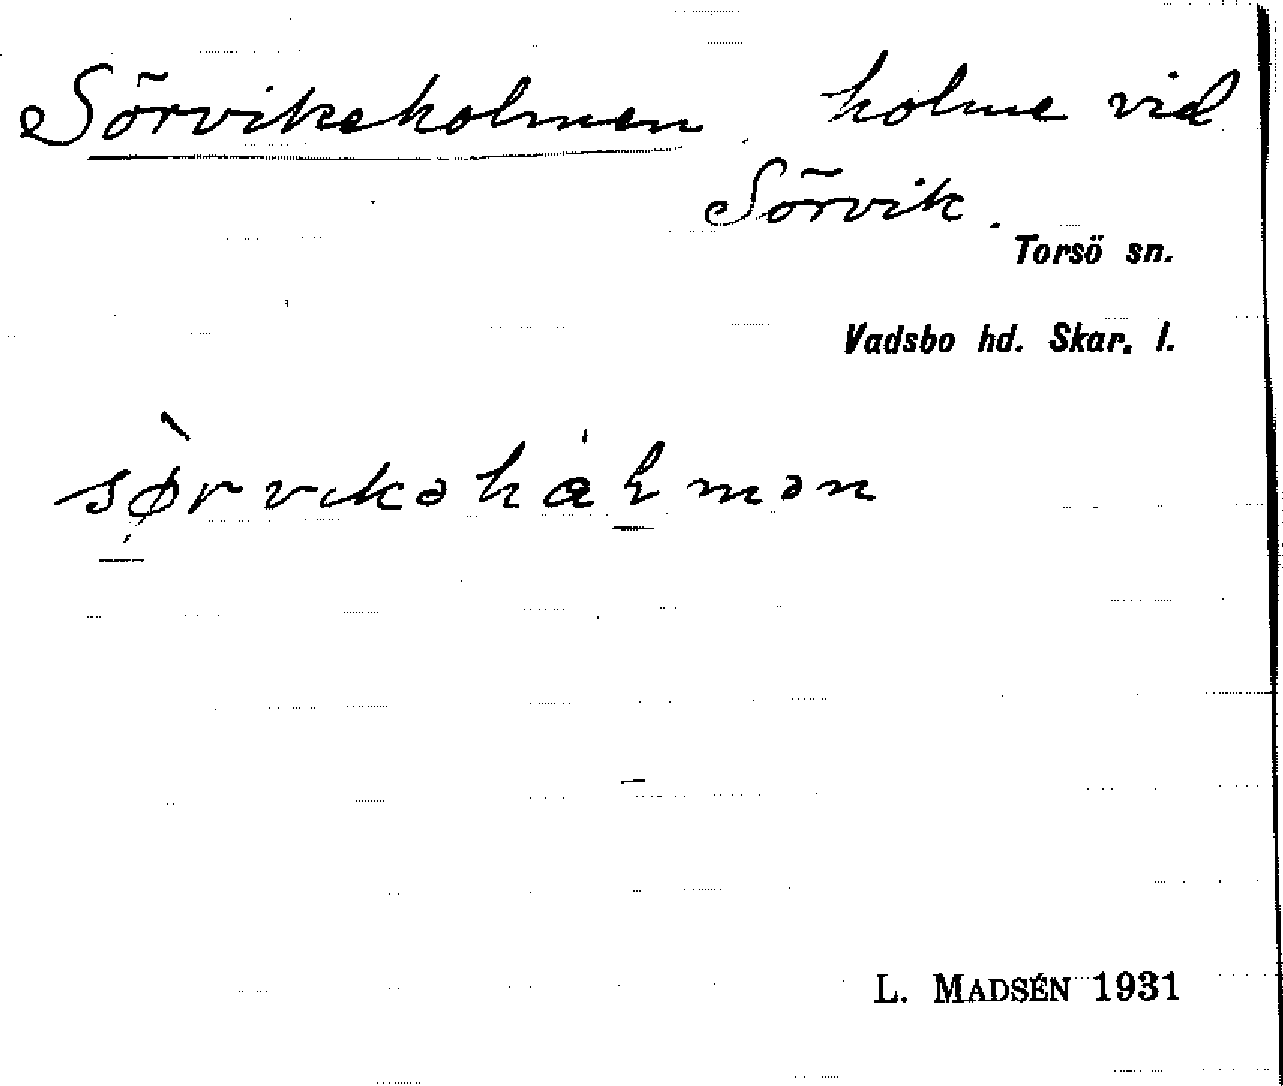 Sörvikeholmen holme vid
Sörvik.
Torsö sn.
Vadsbo hd. Skar. l.
sø̀rvikəhålmən
L. MADSÉN 1931